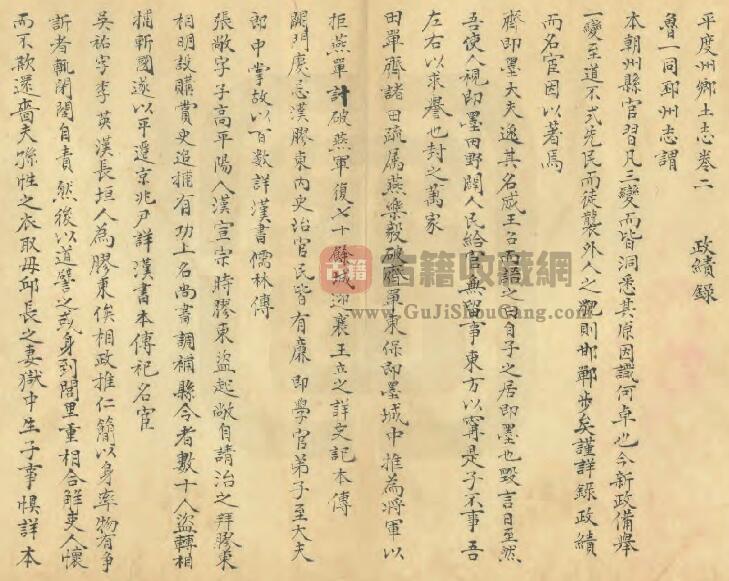 平度州鄉土志卷二　政績錄
魯一同邳州志謂
本朝州縣官習凡三變而皆洞悉其原因識何卓也今新政備舉
一變至道不式先民而徒襲外人之貌則邯鄲步矣謹詳錄政績
而名宦因以著焉
齊即墨大夫逸其名威王召而語之曰自子之居即墨也毀言日至然
吾使人視即墨田野闢人民給官無留事東方以甯是子不事吾
左右以求譽也封之萬家
田單齊諸田疏屬燕樂毅破齊單東保即墨城中推為將軍以
拒燕單計破燕軍復七十餘城迎襄王立之詳史記本傳
闕門慶忌漢膠東內史治官民皆有廉即學官弟子至大夫
郎中掌故以百數詳漢書儒林傳
張敞字子高平陽人漢宣宗時膠東盜起敞自請治之拜膠東
相明設購賞吏追捕有功上名尚書調補縣令者數十人盜轉相
捕斬國遂以平遷京兆尹詳漢書本傳祀名宦
吳祐字季英漢長垣人為膠東侯相政推仁簡以身率物有爭
訴者輒閉閤自責然後以道譬之或身到閭里重相合雖吏人懷
而不欺還嗇夫孫性之衣取毋邱長之妻獄中生子事懼詳本
古籍
古籍收藏網
www.GuJiShouCang.com